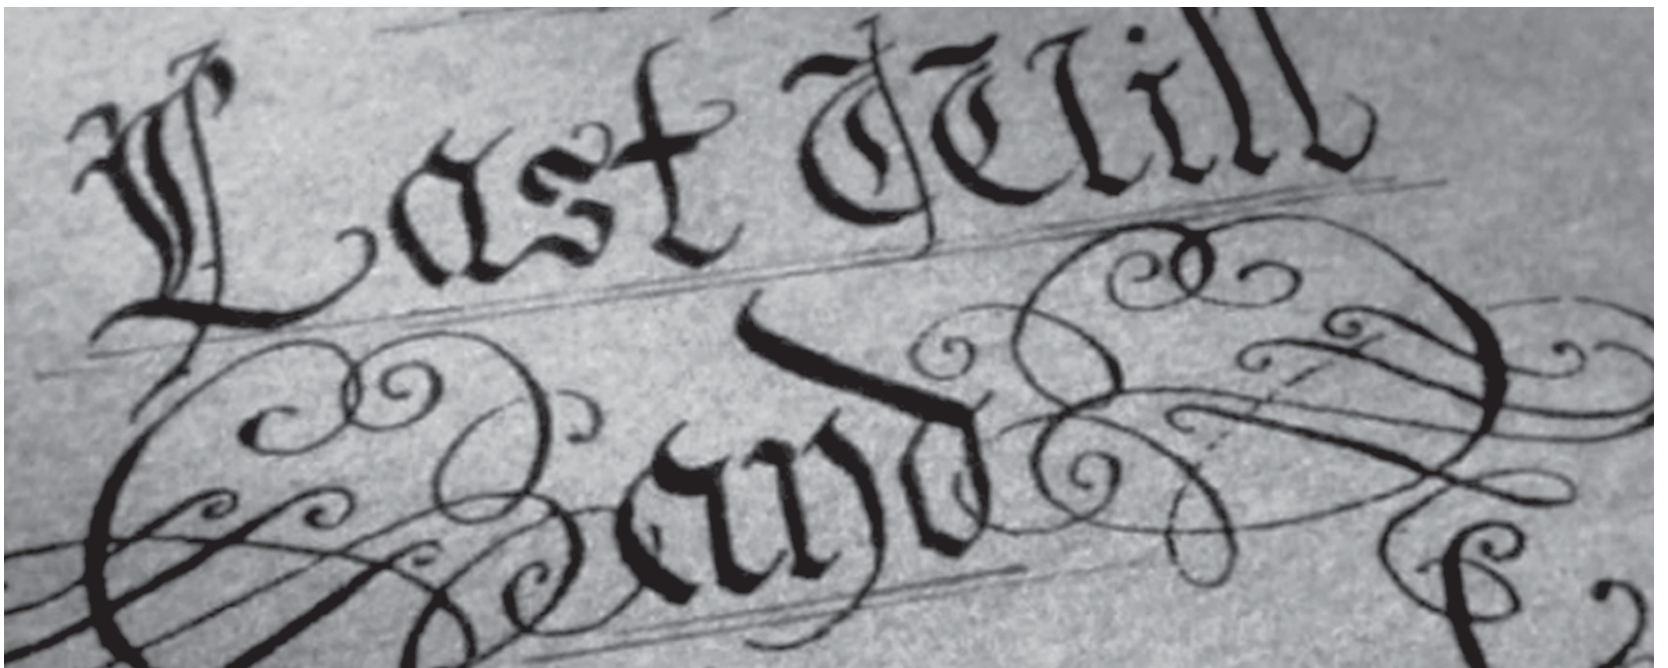 Last Will
and